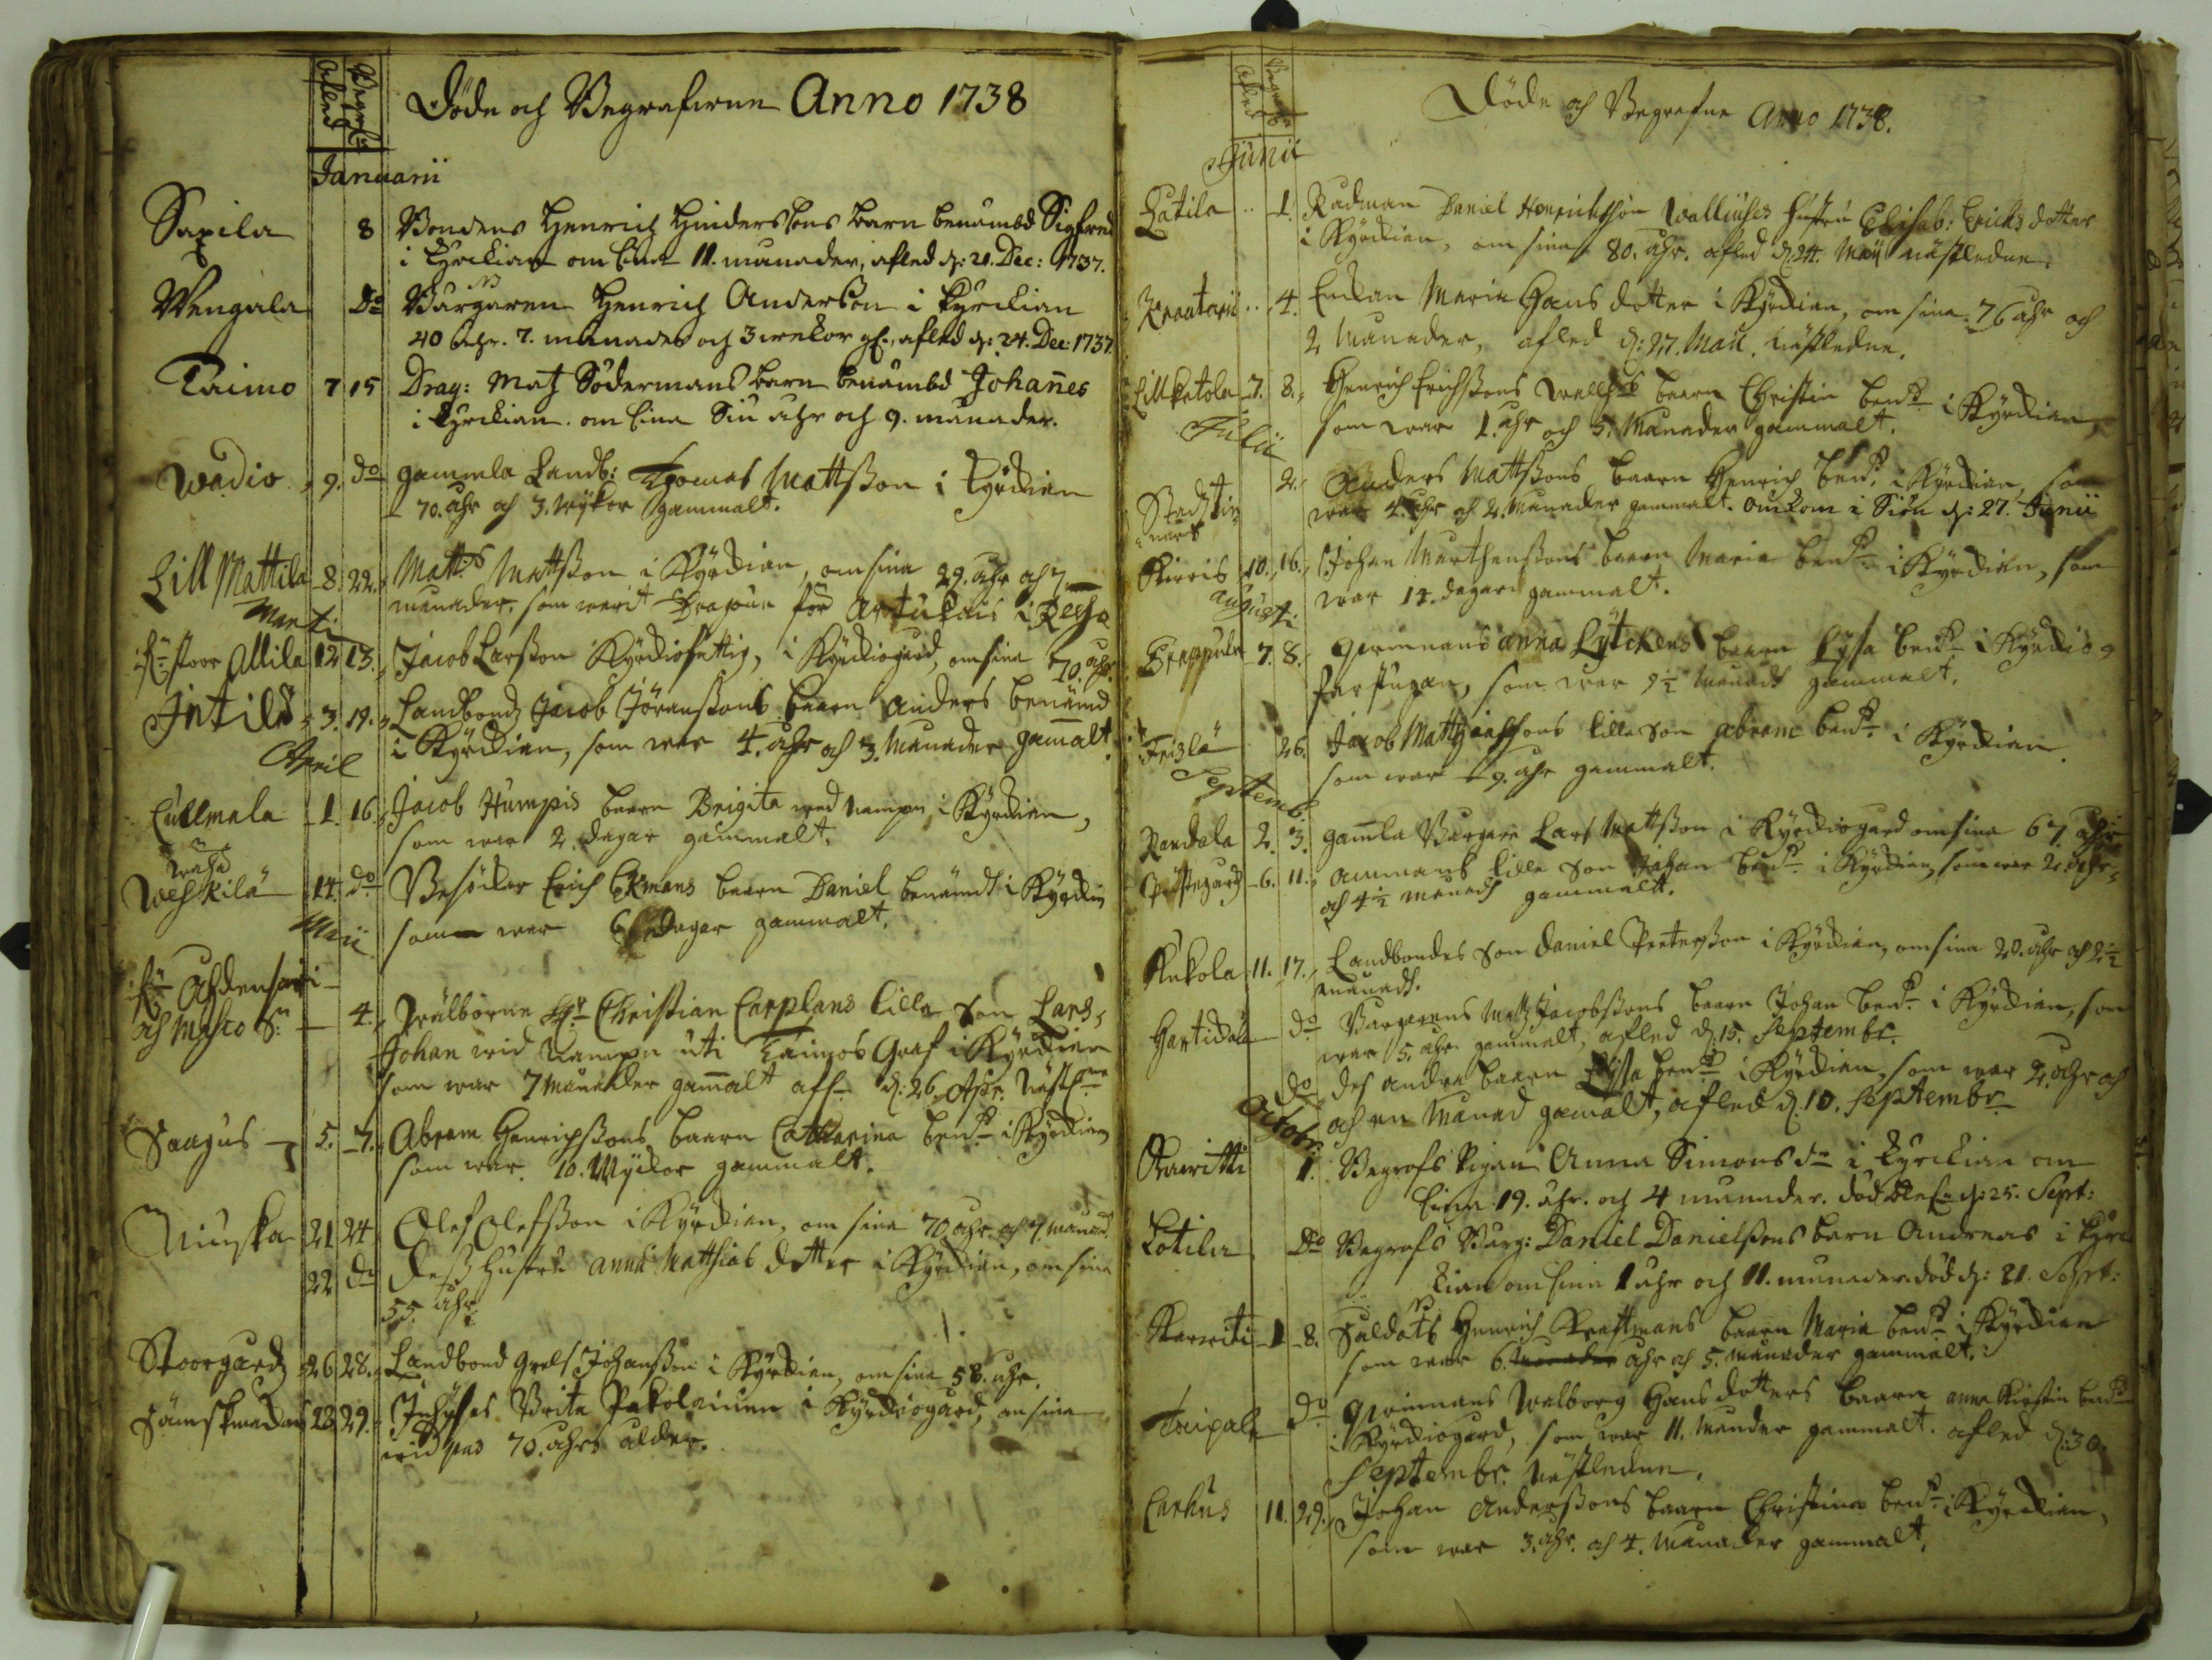 Afled
Begrafn
Döde och Begrafwne Anno 1738
Januarii
Saxila 8 Bondens Henrich Hinderssons barn benämbd Sigfred
i Kyrckian om sina 11. månader, afled d: 21. Dec: 1737.
Wengala Do Burgaren Henrich Andersson i Kyrckian
40 åhr. 7. månader och 3 wekor gl., afled d: 24. Dec: 1737.
Taimo 7 15 Drag: Matz Södermans barn benämbd Johannes
i Kyrckian om sina Siu åhr och 9. månader.
Wadio 9. do gammla Landb: Thomas Mattsson i Kyrckian
70. åhr och 3. wykor gammalt.
Lill Mattila 8. 22. Matts Mattsson i Kyrckian, om sina 29. åhr och 7
månader, som warit Dragoun för Artukais i Resho
Marti
stoor Allila 12 13. Jacob Larsson Kyrckiofattig, i Kyrckiogård, om sina 70. åhr.
Intilä 3. 19. Landbond Jacob Jöranssons baarn Anders benämd
i Kyrckian, som war 4. åhr och 3. Månader gammalt.
April
Cullmala 1. 16. Jacob Humpis baarn Brigita wed nampn i Kyrckian,
som war 2. dagar gammalt.
Weskilä 14. do Besökar Erich Ekmans baarn Daniel benämdt i Kyrckian
som war 6 dagar gammalt.
Maii
Ahdensari
och Misco 4. Wälborne Hr Christian Carplans lilla Son Lars
Johan wid nampn uti Taimos Graf i Kyrckian
som war 7 Månader gammalt afl. d: 26. Apr. Näst
Saagus 5. 7. Abram Henrichssons baarn Catharina bend i Kyrckian
som war 10. Wyckor gammalt.
Niuska 21 24 Olef Olefsson i Kyrckian, om sina 70 åhr och 7. månad
22 do Dess hustru Anna Matthias dotter i Kyrckian, om sina
55. åhr
Stoorgård 26 28. Landbond Grels Johansson i Kyrckian, om sina 58. åhr.
23 29. Inhyses Brita Pakolainen i Kyrckiogård, om sina
wid pas 70. åhrs ålder.
Afled
Begrafn
Döde och Begrafne Anno 1738.
Junii
Latila 1. Radman Daniel Henrichsson Walliuses hustru Elisab: Ericks dotter
i Kyrckian, om sina 80. åhr. afled d. 24. Maii nästledne.
4. Enckan Maria Hans dotter i Kyrckian, om sina 76 åhr och
2 Månader, afled d: 27. Maii. nästledne.
Lillketola 7. 8. Henrich Erichssons baarn Christin bend i Kyrckian
som war 1. åhr och 5. Månader gammalt.
Julii
2. Anders Mattssons baarn Henrich bend i Kyrckian, som
war 4. åhr och 2. Månader gammalt. omkom i Siön d: 27. Junii
Kiwis 10. 16. Johan Marthenssons baarn Maria bend i Kyrckian, som
war 14. dagar gammalt.
Augusti
Trappula 7. 8. Qwinnans Anna Lytckens baarn Lysa bend i Kyrckio
farstugan, som war 9½ Månad gammalt.
Frizlä 26. Jacob Matthiaesons lilla Son Abram bend i Kyrckian
som war 9. åhr gammalt.
Septemb.
Randala 2. 3. gamla Burgare Lars Mattsson i Kyrckiogård om sina 67 åhr
Prästegård 6. 11. Ammans lilla Son Johan bend i Kyrckian, som war 2. åhr,
och 4½ månad gammalt.
Kukola 11. 17. Landbondes Son Daniel Petersson i Kyrckian, om sina 20. åhr och 2½
månad.
Hartikala do Burgarens Matz Jacobssons baarn Johan bend i Kyrckian, som
war 5. åhr gammalt, afled d. 15. Septembr.
do des andra baarn Lysa bend i Kyrckian, som war 2. åhr och
och en Månad gamalt, afled d. 10. Septembr.
Octobr:
1. Begrofs Pigan Anna Simons dr i Kyrckian om
sina 19. åhr. och 4 månader. död d: 25. Sept:
Lotila Do Begrofs Burg: Daniel Danielssons barn Andreas i Kyrc
kian om sina 1 åhr och 11. månader. död d: 21. Sept:
1 8. Soldats Henrich Krafftmans baarn Maria bend i Kyrckian
som war 6. åhr och 5. månader gammalt.
do Qwinnans Walborg Hans dotters baarn Anna Kirstin bend
i Kyrckiogård, som war 11. Månder gammalt. afled d: 30.
Septembr. Nästledne.
Carhus 11. 29. Johan Anderssons baarn Christina bend i Kyrckian,
som war 3. åhr. och 4. Månader gammalt.